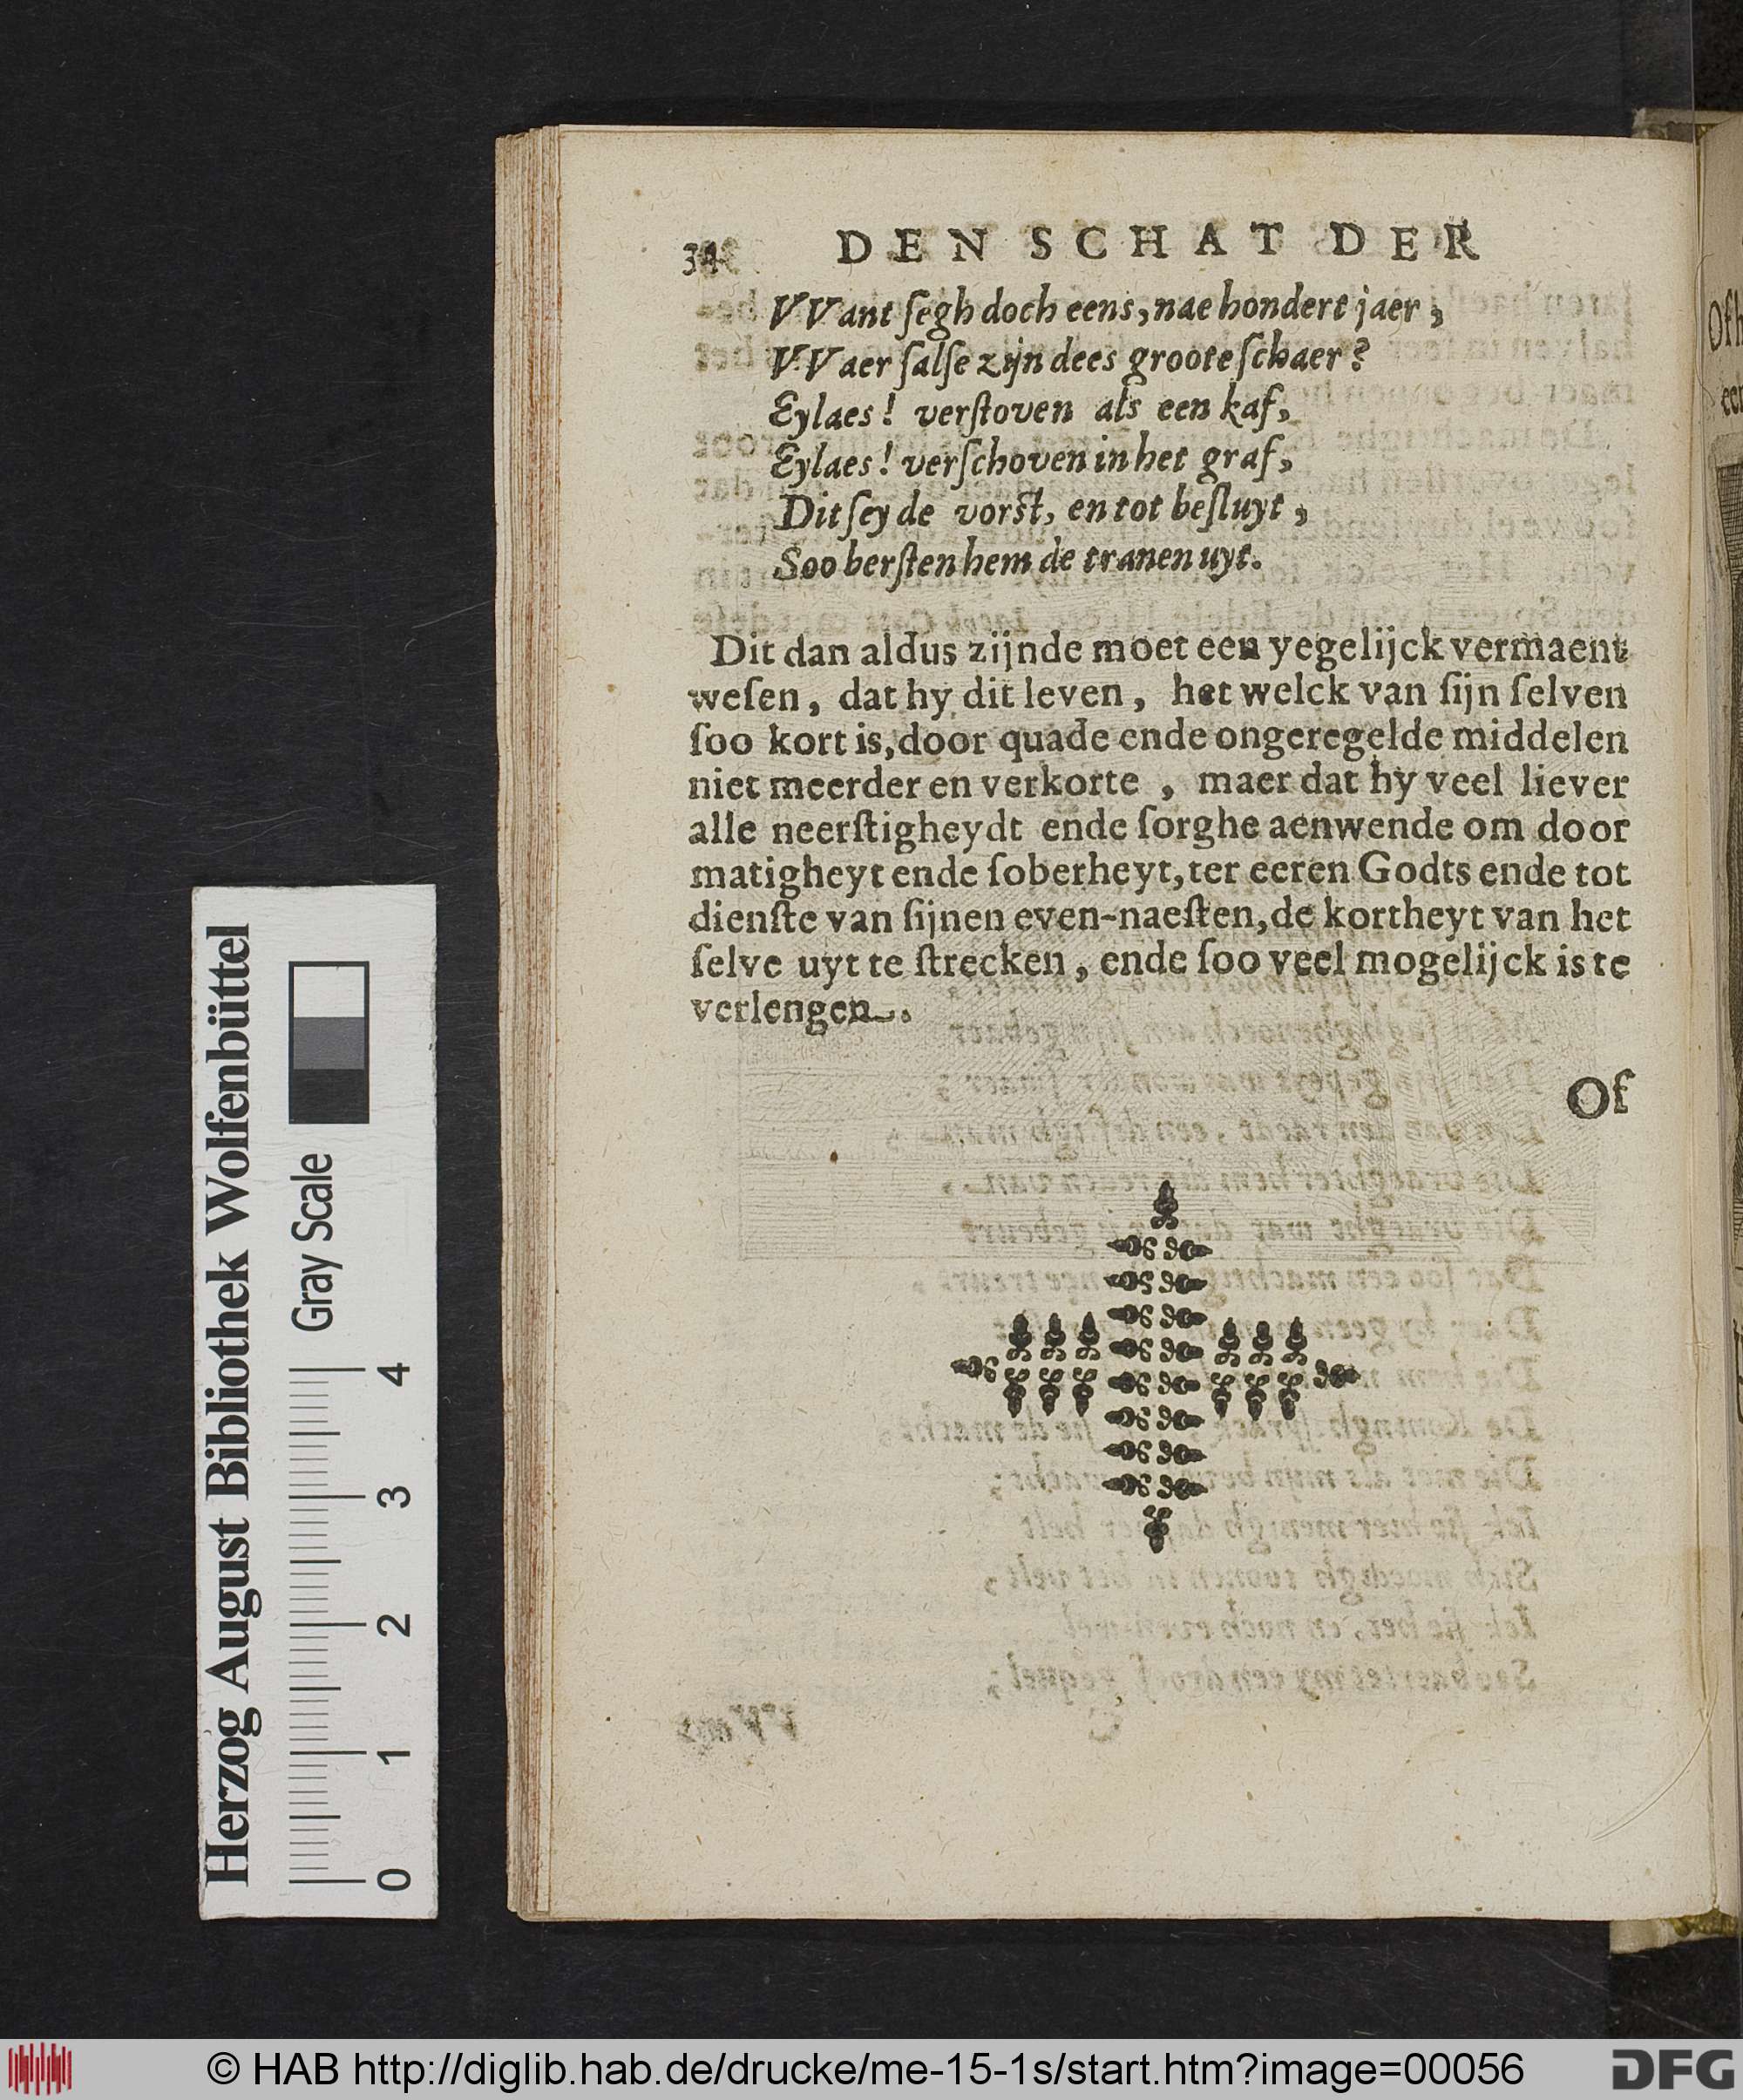 34 DEN SCHAT DER
VVant ſegh doch eens, nae hondert jaer,
VVaer ſalſe zijn dees groote ſchaer?
Eylaes! verſtoven als een kaf,
Eylaes! verſchoven in het graf,
Dit ſey de vorst, en tot beſluyt,
Soo berſten hem de tranen uyt.
Dit dan aldus zijnde moet een yegelijck vermaent
weſen, dat hy dit leven, het welck van ſijn ſelven
ſoo kort is, door quade ende ongeregelde middelen
niet meerder en verkorte, maer dat hy veel liever
alle neerſtigheydt ende ſorghe aenwende om door
matigheyt ende ſoberheyt, ter eeren Godts ende tot
dienſte van ſijnen even-naeſten, de kortheyt van het
ſelve uyt te ſtrecken, ende ſoo veel mogelijck is te
verlengen.
Of
Herzog August Bibliothek Wolfenbüttel
Gray Scale
0 1 2 3 4
© HAB http://diglib.hab.de/drucke/me-15-1s/start.htm?image=00056
DFG